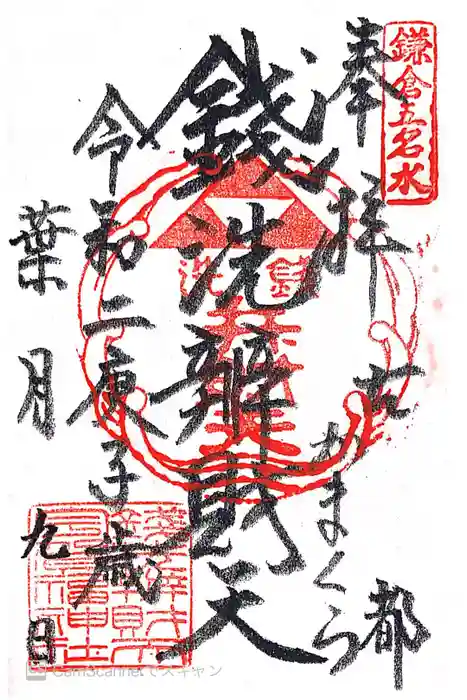 鎌倉五名水
奉拝 古都
かまくら
銭洗辨財天
銭洗
令和二庚子歳
葉月
九日
CamScannerでスキャン